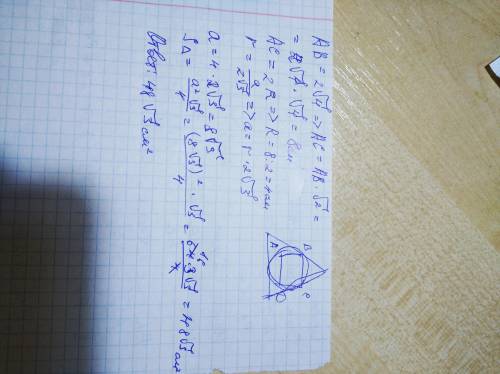 AB = 2√4 => AC = AB · √2 =
= 2√4 · √4 = 8см
AC = 2R => R = 8:2 = 4см
r = a/2√3 => a = r · 2√3
a = 4 · 2√3 = 8√3
S△ = a²√3/4 = (8√3)² · √3/4 = 64·3√3/4 = 48√3 см²
Ответ: 48√3 см²
A B C D